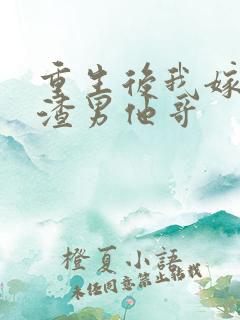 重生後我嫁
渣男他哥
橙夏小語
未经同意禁止转载